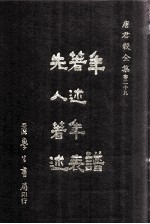 唐君毅全集 卷二十九
年譜
著述年表
先人著述
學生書局印行